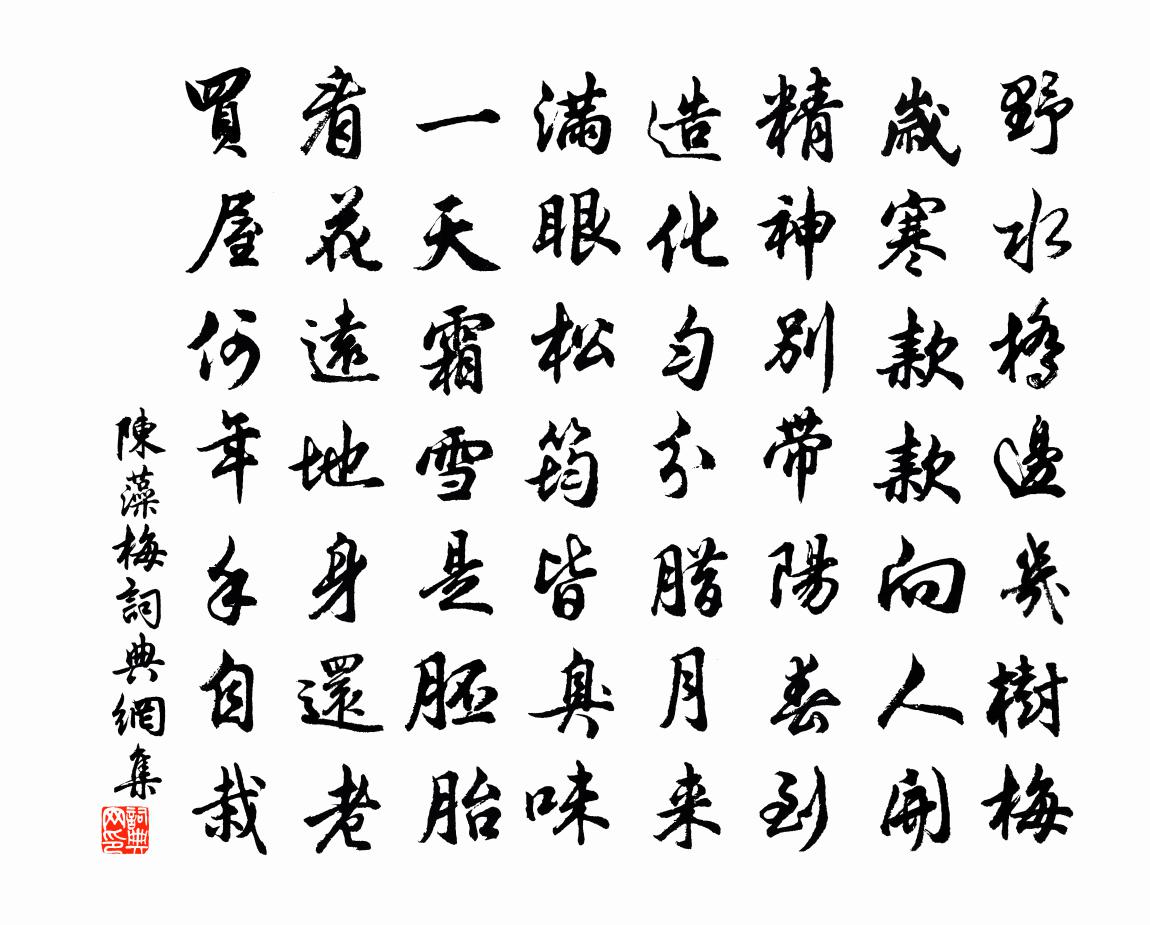 野水橋邊幾樹梅
歲寒款款向人開
精神別帶陽春到
造化勻分腊月来
滿眼松筠皆臭味
一天霜雪是胚胎
看花遠地身還老
買屋何年手自栽
陳藻梅詞典網集
詞典網印